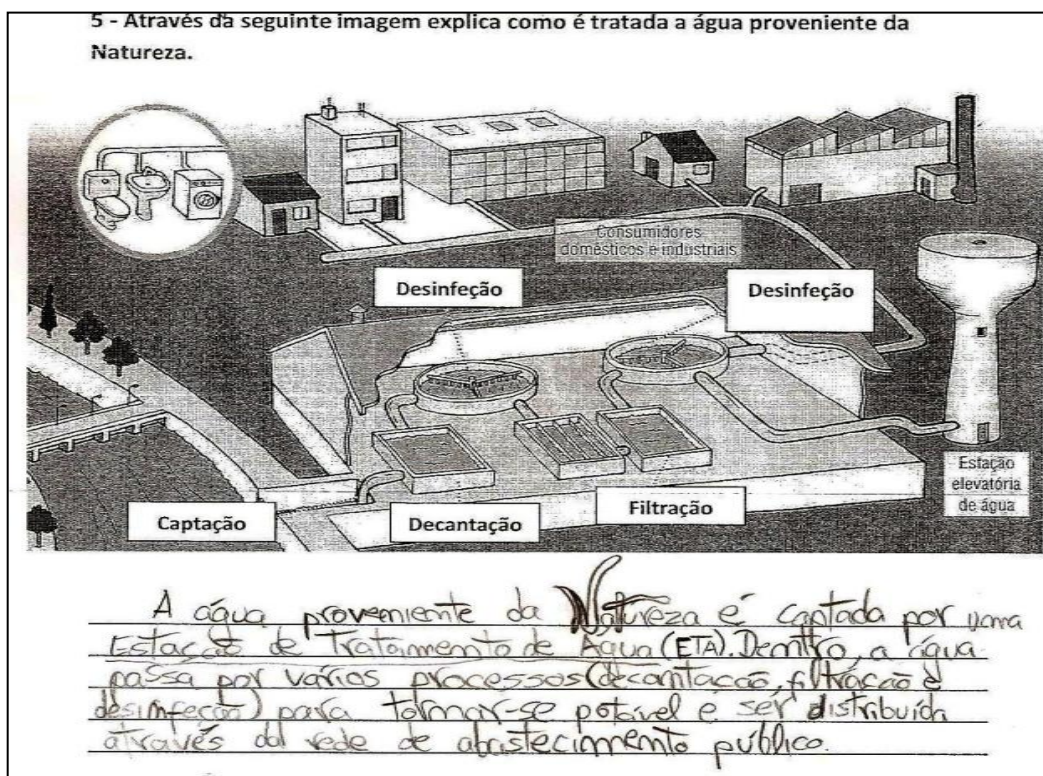 5 - Através da seguinte imagem explica como é tratada a água proveniente da
Natureza.
Consumidores
domésticos e industriais
Desinfeção
Desinfeção
Estação
elevatória
de água
Captação
Decantação
Filtração
A água proveniente da Natureza é captada por uma
Estação de Tratamento de Água (ETA). Dentro, a água
passa por vários processos (decantação, filtração e
desinfeção) para tornar-se potável e ser distribuída
através da rede de abastecimento público.